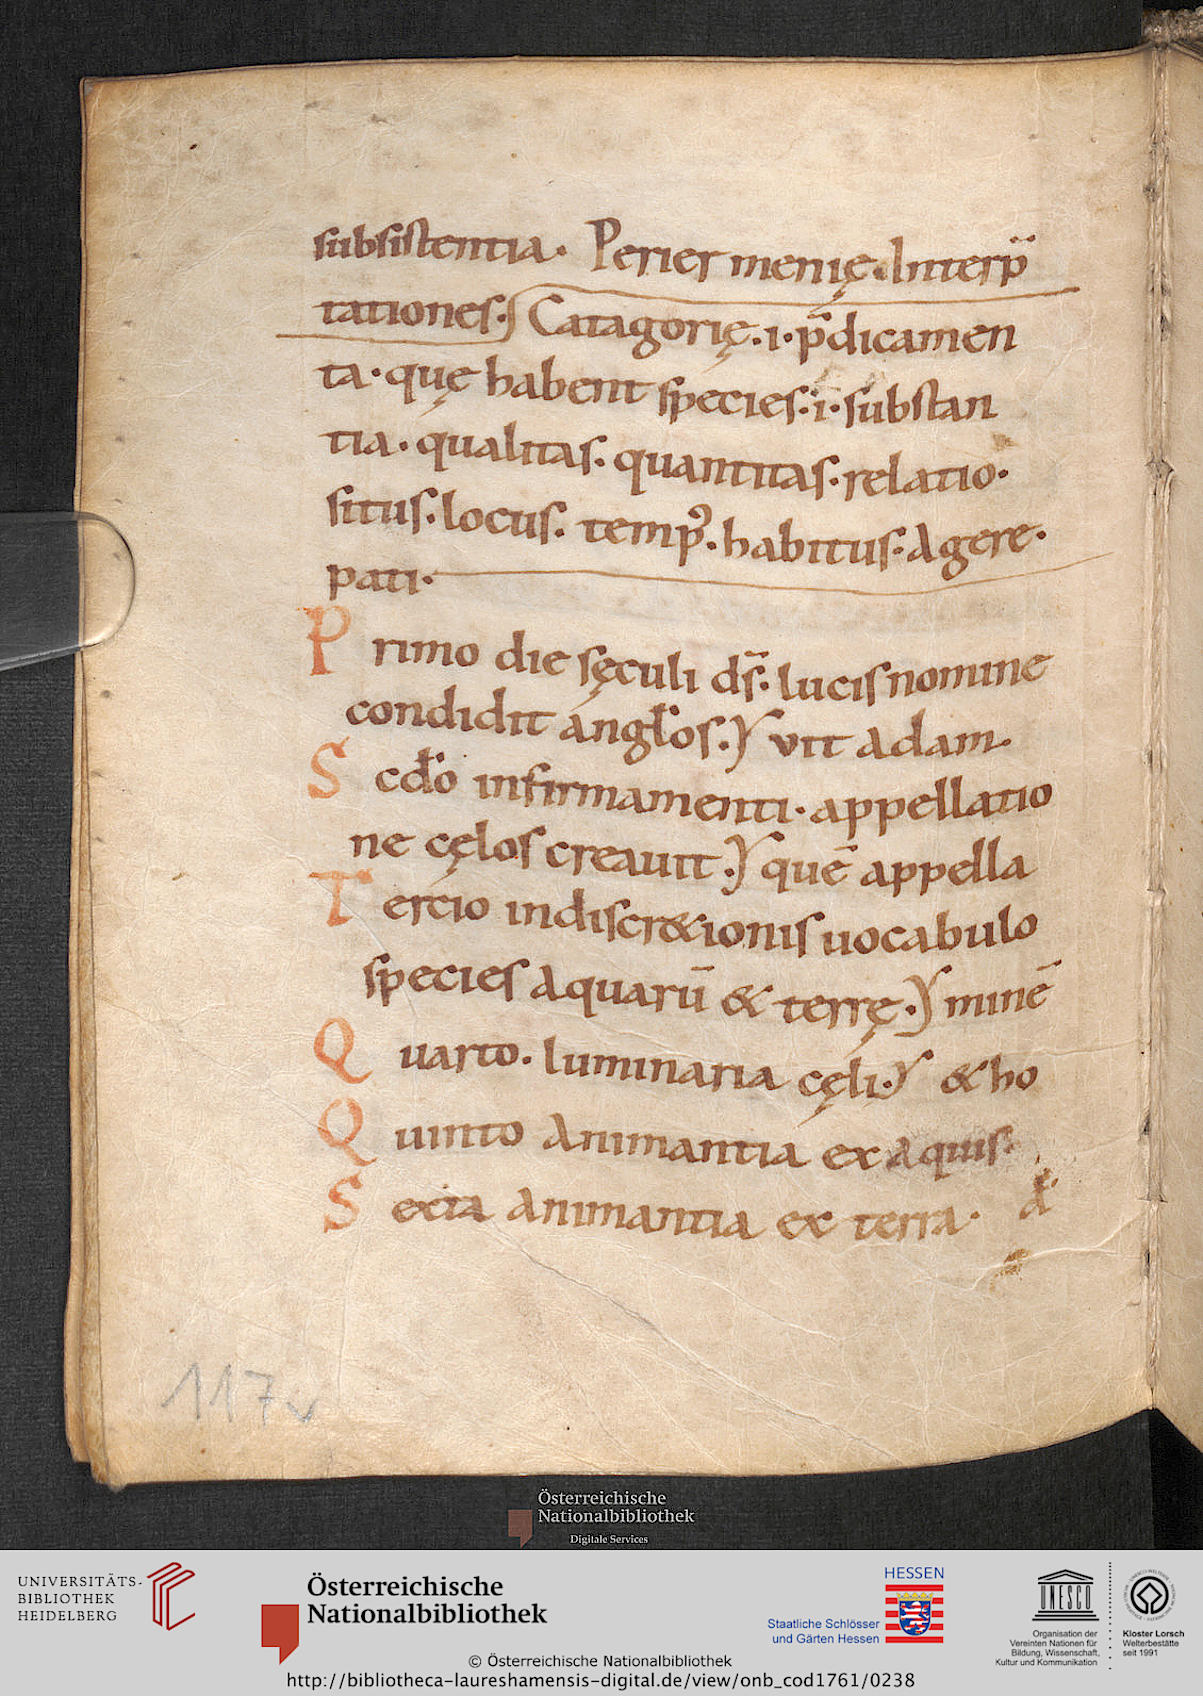 subsistentia. Perier menię. Interp̈
tationes. Catagorię. i. p̄dicamen
ta. quę habent species. i. substan
tia. qualitas. quantitas. relatio.
situs. locus. temp᾽. habitus. Agere.
pati.
Primo die sęculi ds̄. lucis nomine
condidit anglos. vit adam.
Scdo infirmamenti. appellatio
ne cęlos creauit. quē appella
Tercio indiscr&ionis uocabulo
species aquarū & terrę. minē
Quarto. luminaria cęli. & ho
Quinto animantia ex aquis.
Sexta animantia ex terra.
117v
Österreichische
Nationalbibliothek
Digitale Services
UNIVERSITÄTS-
BIBLIOTHEK
HEIDELBERG
Österreichische
Nationalbibliothek
HESSEN
Staatliche Schlösser
und Gärten Hessen
UNESCO
Organisation der
Vereinten Nationen für
Bildung, Wissenschaft,
Kultur und Kommunikation
Kloster Lorsch
Welterbestätte
seit 1991
© Österreichische Nationalbibliothek
http://bibliotheca-laureshamensis-digital.de/view/onb_cod1761/0238